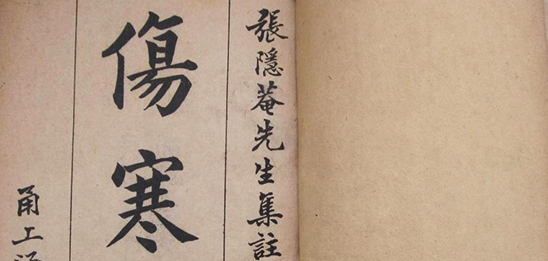 張隱菴先生集註
傷寒
甬上